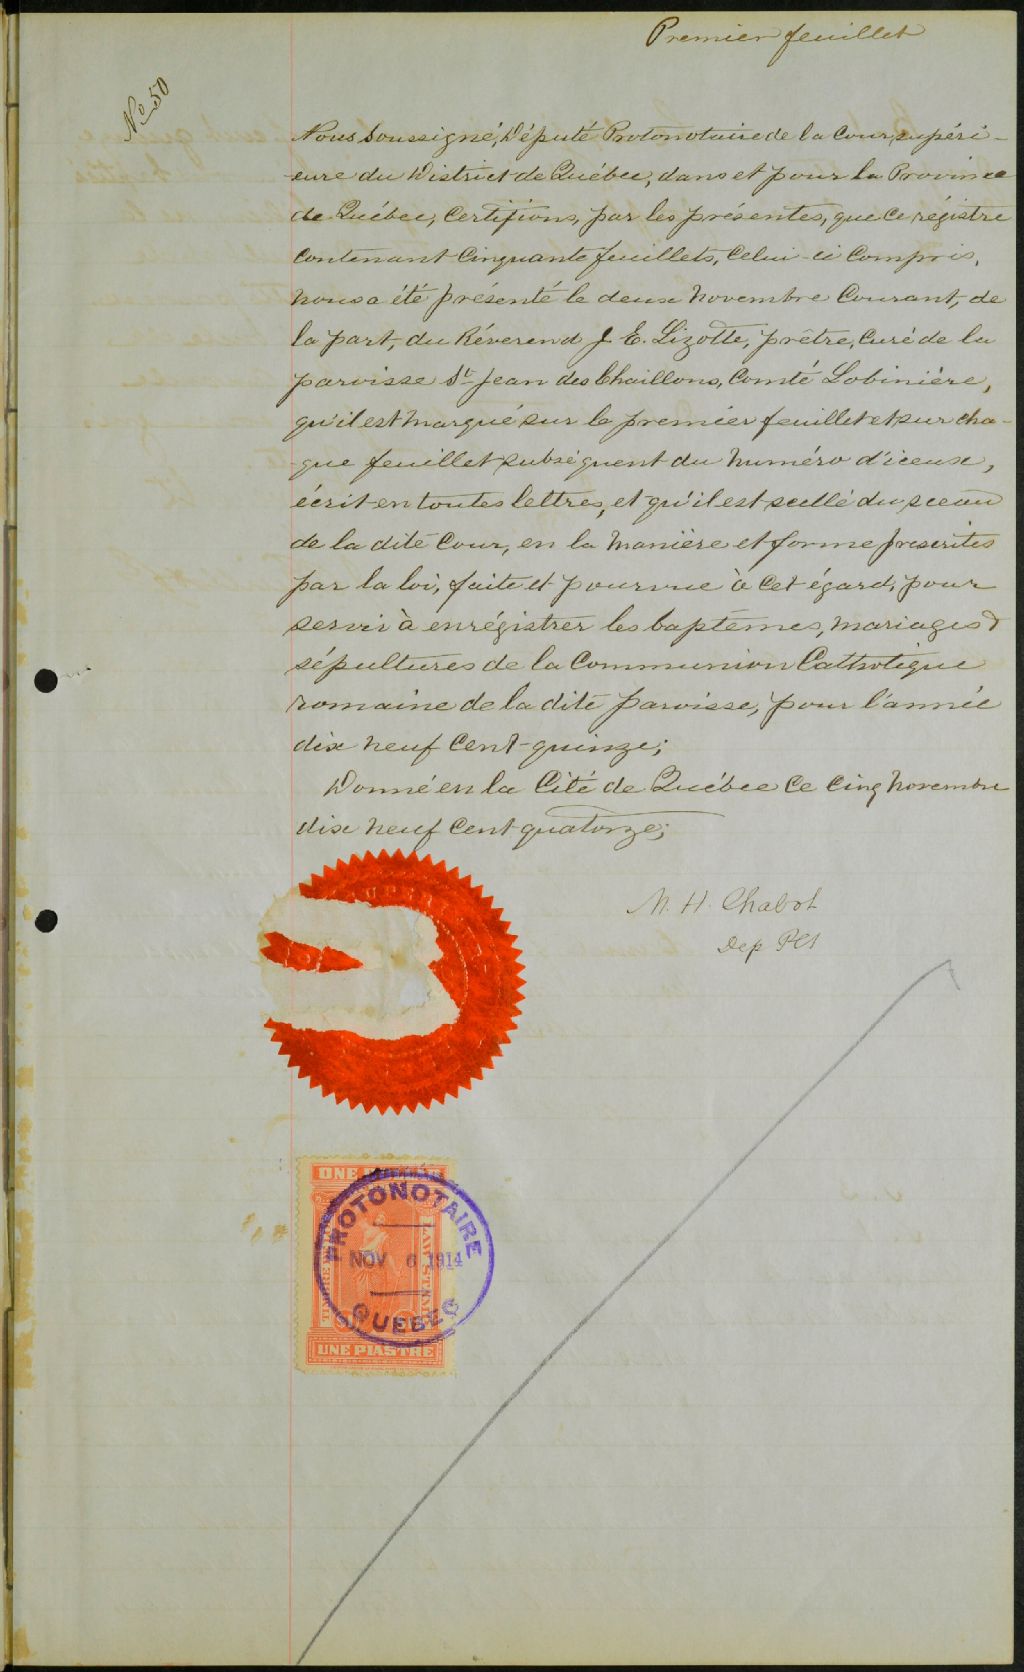 Premier feuillet
No 50
Nous Soussigné, Député Protonotaire de la Cour supéri-
eure du District de Québec, dans et pour la Province
de Québec, Certifions, par les présentes, que ce régistre
contenant Cinquante feuillets, Celui-ci Compris,
nous a été présenté le deux Novembre Courant, de
la part, du Révérend J. E. Lizotte, prêtre, Curé de la
paroisse St Jean des Chaillons, Comté Lobinière,
qu'il est marqué sur le premier feuillet et sur cha-
que feuillet subséquent du Numéro d'iceux,
écrit en toutes lettres, et qu'il est scellé du sceau
de la dite Cour, en la Manière et forme prescrites
par la loi, faite et pourvue à Cet égard, pour
servir à enrégistrer les baptêmes, mariages &
sépultures de la Communion Catholique
romaine de la dite paroisse, pour l'année
dix neuf Cent-quinze;
Donné en la Cité de Québec ce Cinq Novembre
dix neuf Cent quatorze;
M. H. Chabot
Dep PCS
SUPER
ONE
LAW STAMP
PROTONOTAIRE
NOV 6 1914
QUEBEC
UNE PIASTRE